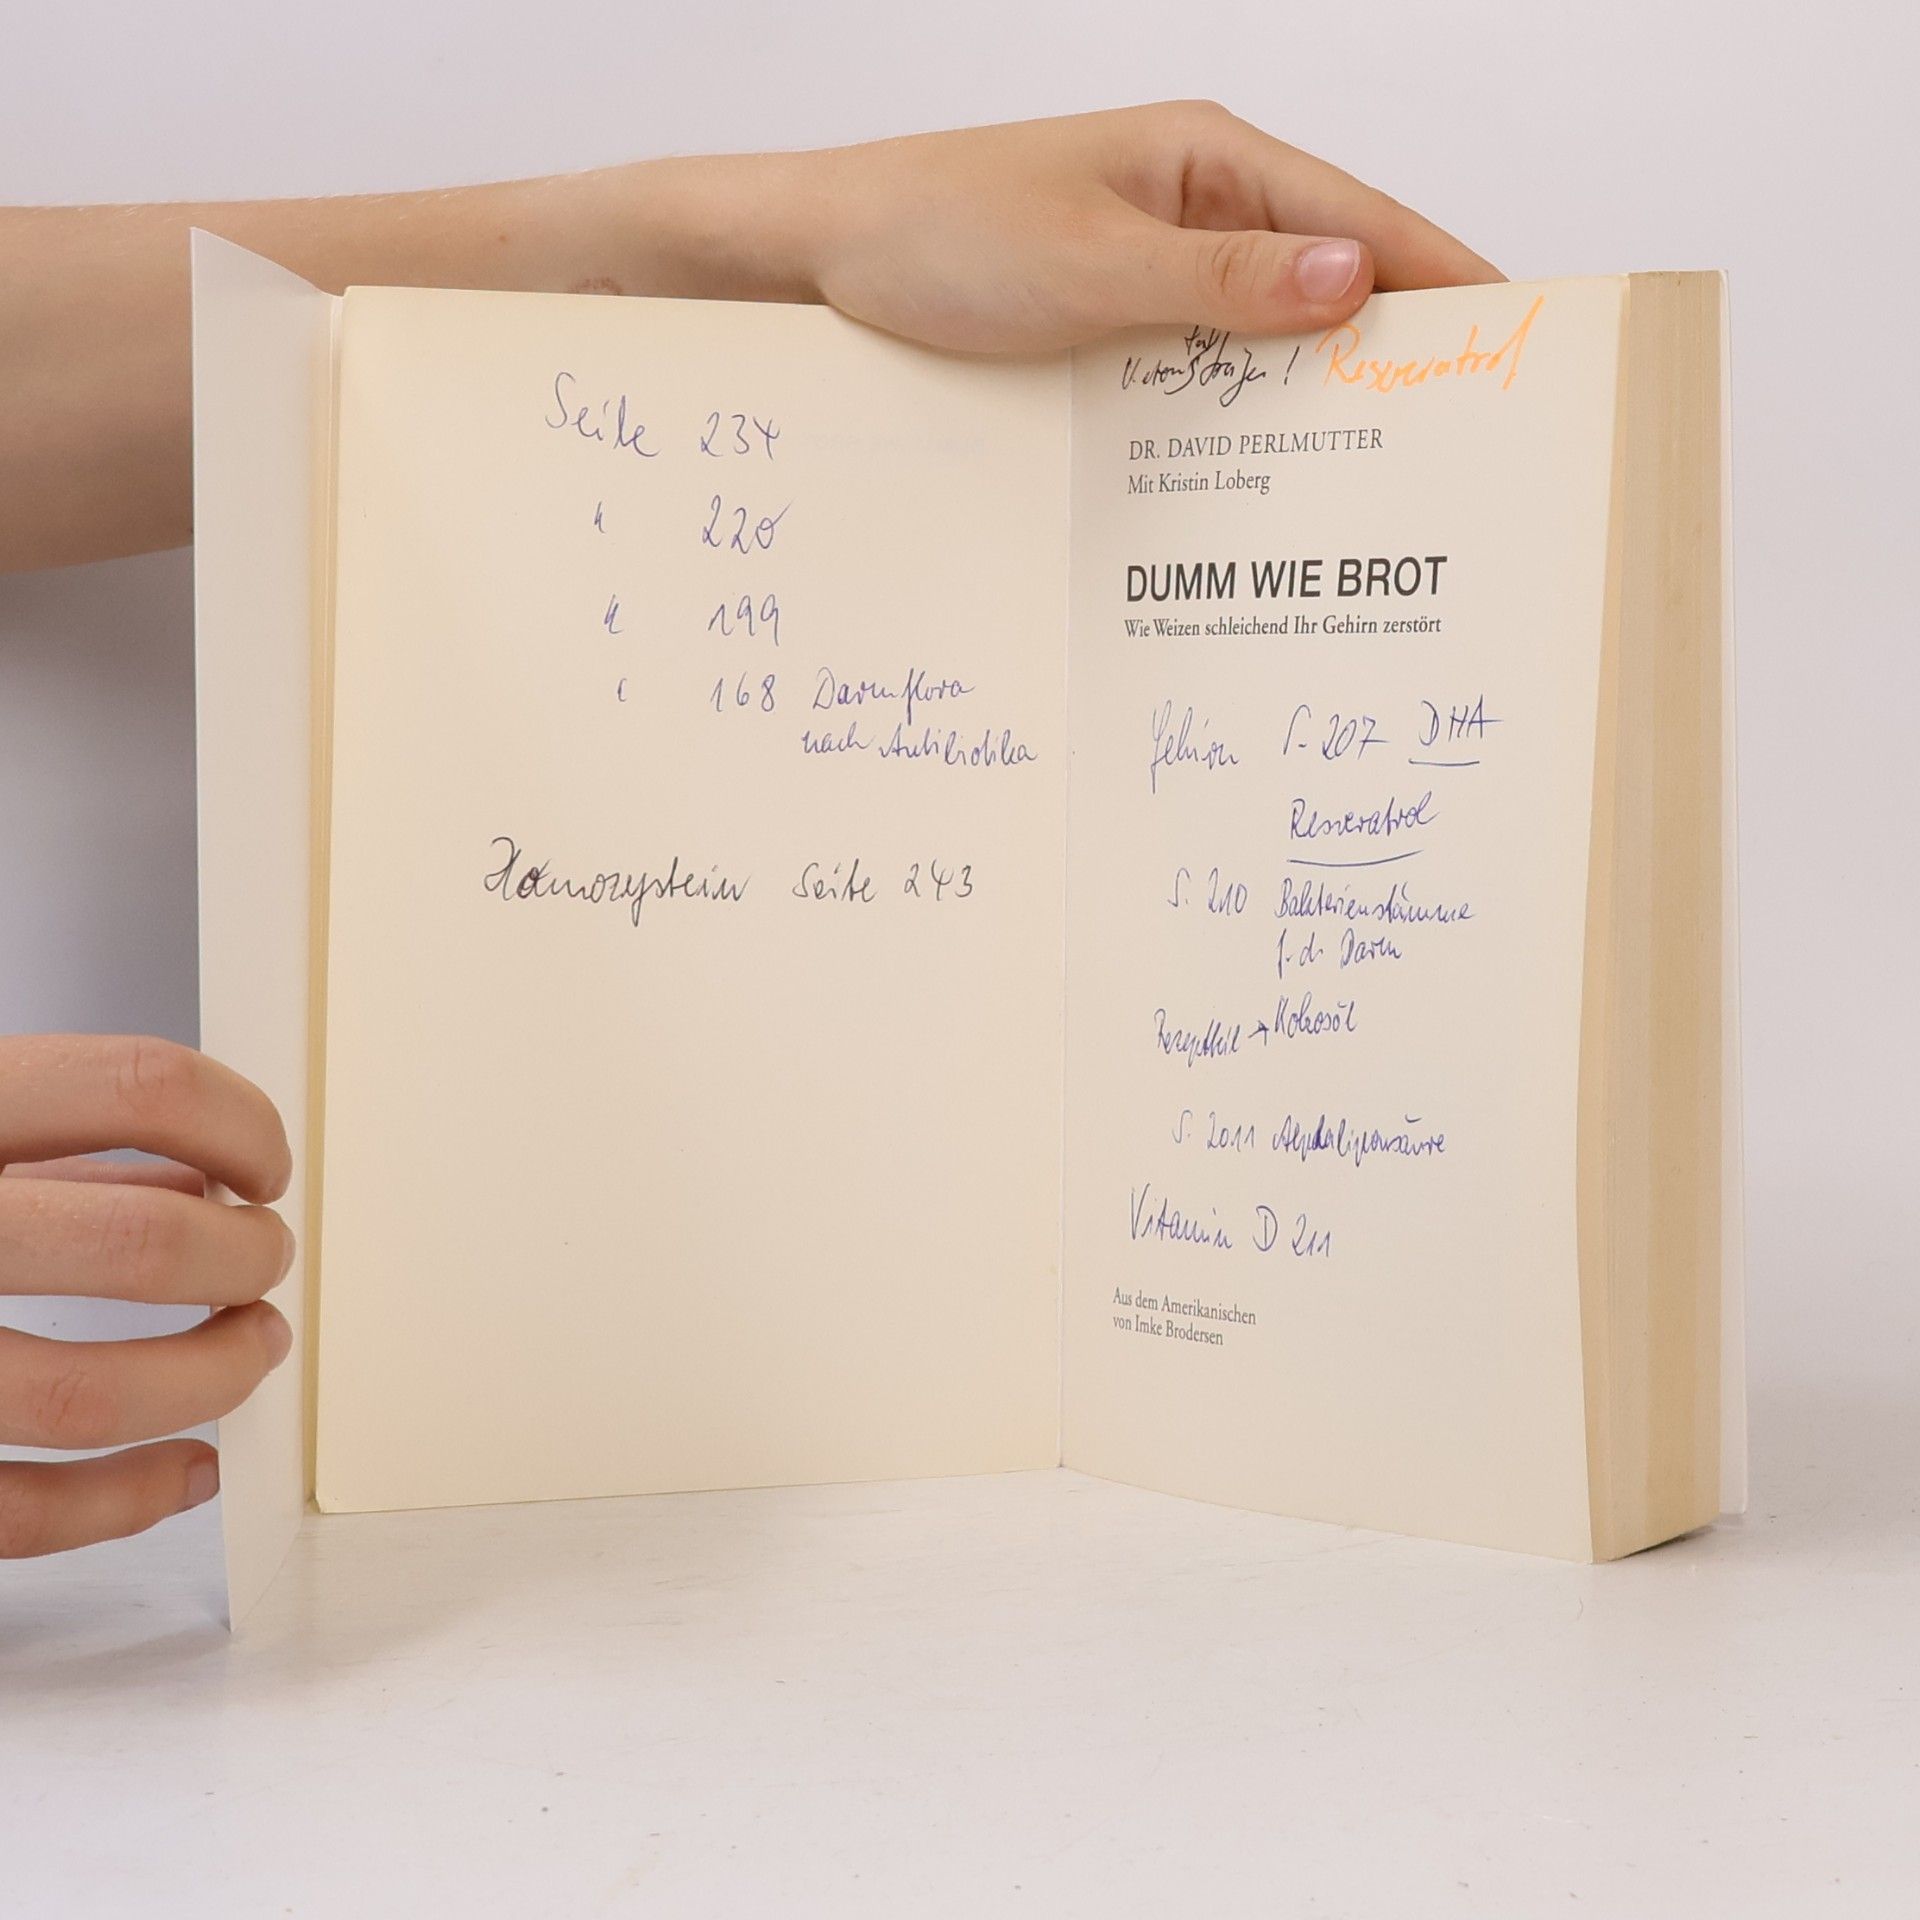 Seite 234
" 220
" 199
" 168 Darmflora
nach Antibiotika
Homozystein Seite 243
! Resveratrol
DR. DAVID PERLMUTTER
Mit Kristin Loberg
DUMM WIE BROT
Wie Weizen schleichend Ihr Gehirn zerstört
Gehirn S. 207 DHA
Resveratrol
S. 210 Bakterienstämme
f. d. Darm
Rezeptteil → Kokosöl
S. 2011 Alphaliponsäure
Vitamin D 211
Aus dem Amerikanischen
von Imke Brodersen